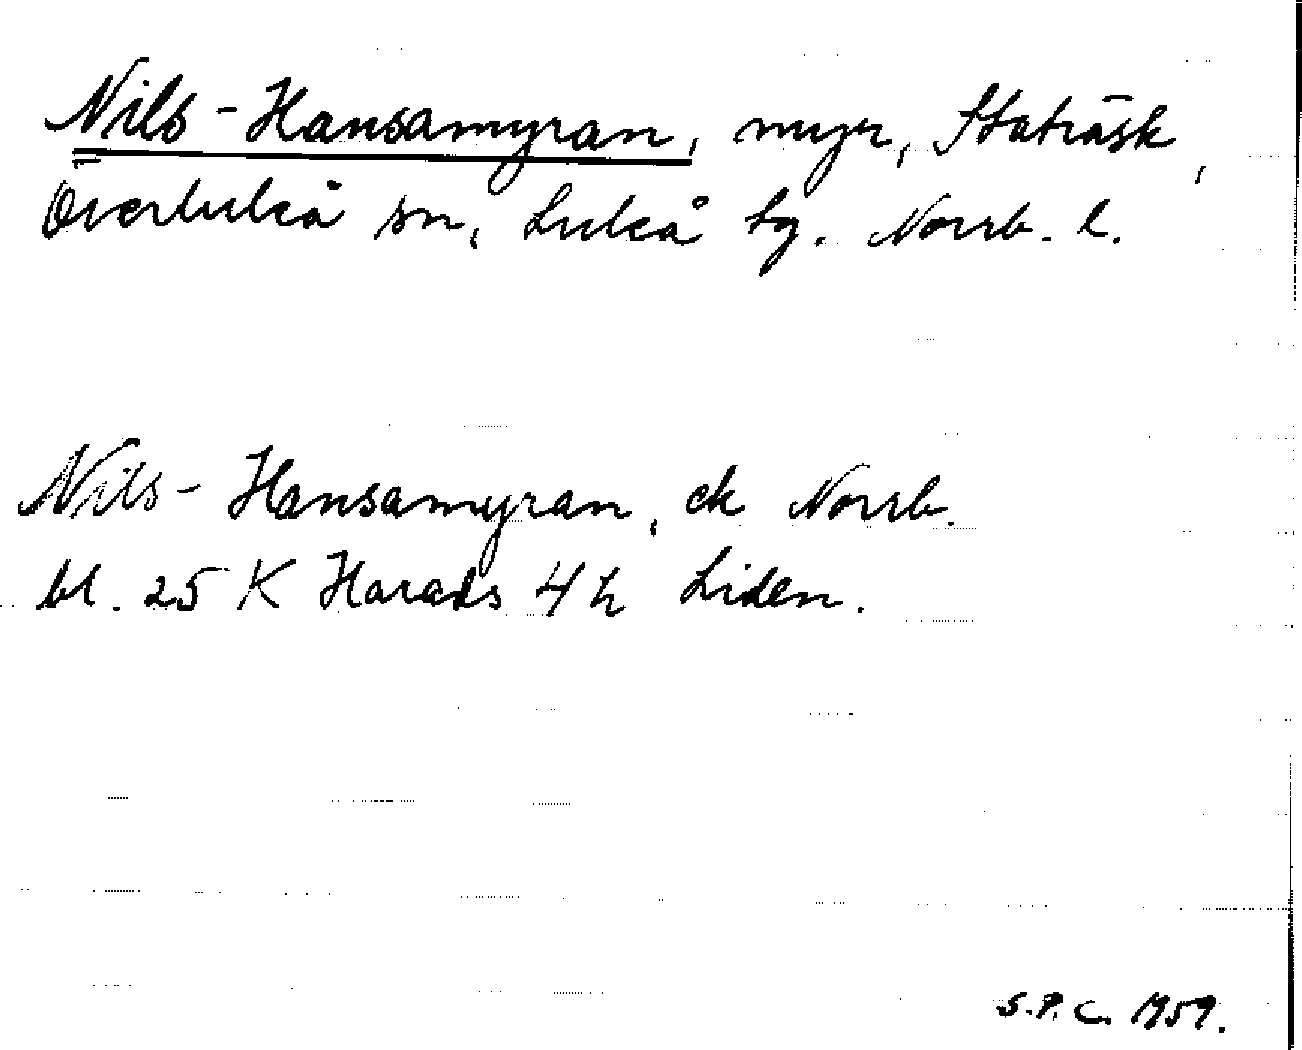 Nils-Hansamyran, myr, Staträsk,
Överluleå sn, Luleå tg. Norrb. l.
Nils-Hansamyran, ek Norrb.
bl. 25 K Harads 4 h Liden.
S.P.C. 1959.